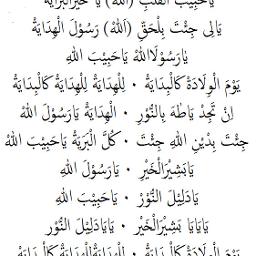 يَاحَبِيْبَ القَلْبِ (الله) يَا خَيْرَالبَرَايَة
يَالِى جِئْتَ بِلْحَقِّ (اَللهُ) رَسُوْلَ الْهِدَايَةْ
يٰارَسُوْلَاللهْ يَاحَبِيْبَ اللهِ
يَوْمَ الْوِلَادَةْ كَالْبِدَايَةْ ٠ لِلْهِدَايَةْ لِلْهِدَايَةْ كَالْبِدَايَةْ
لِنْ تَجِدْ يَاطٰهَ بِالنُّوْرِ ٠ الْهِدَايَةْ يَارَسُوْلَ اللهْ
جِئْتَ بِدْيْنِ اللهِ جِئْتَ ٠ كُلَّ الْبَرَيَّةْ يَاحَبِيْبَ اللهْ
يَابَشِيْرَالْخَيْرِ ٠ يَارَسُوْلَ اللهِ
يَادَلِيْلَ النُّوْرْ ٠ يَاحَبِيْبَ اللهِ
يَايَايَا بَشِيْرَالْخَيْرِ ٠ يَايَادَلِيْلَ النُّوْر
يَوْمَ الْوِلَادَةْ كَالْبِدَايَةْ ٠ لِلْهِدَايَةْ لِلْهِدَايَةْ كَالْبِدَايَةْ